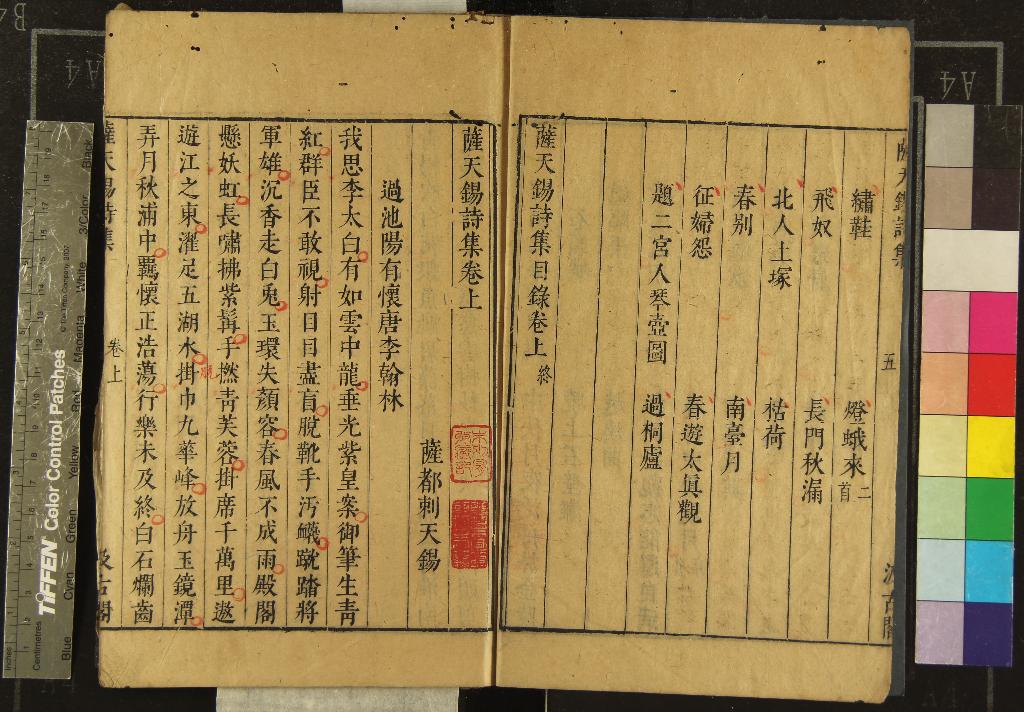 薩天錫詩集
五
汲古閣
繡鞋
燈蛾來二首
飛奴
長門秋漏
北人上塚
枯荷
春别
南臺月
征婦怨
春遊太真觀
題二宮人琴壺圖
過桐廬
薩天錫詩集目錄卷上 終
薩天錫詩集卷上
薩都剌天錫
過池陽有懷唐李翰林
我思李太白有如雲中龍垂光紫皇案御筆生靑
紅群臣不敢視射目目盡盲脫靴手汚衊蹴踏將
軍雄沉香走白兎玉環失顏容春風不成雨殿閣
懸妖虹長嘯拂紫髯手撚靑芙蓉掛席千萬里遨
遊江之東濯足五湖水掛巾九華峰放舟玉鏡潭
弄月秋浦中羈懷正浩蕩行樂未及終白石爛齒
薩天錫詩集
卷上
汲古閣
TIFFEN Color Control Patches
© The Tiffen Company, 2007
Inches
Centimetres
Blue
Cyan
Green
Yellow
Red
Magenta
White
3/Color
Black
A4
A4
B4